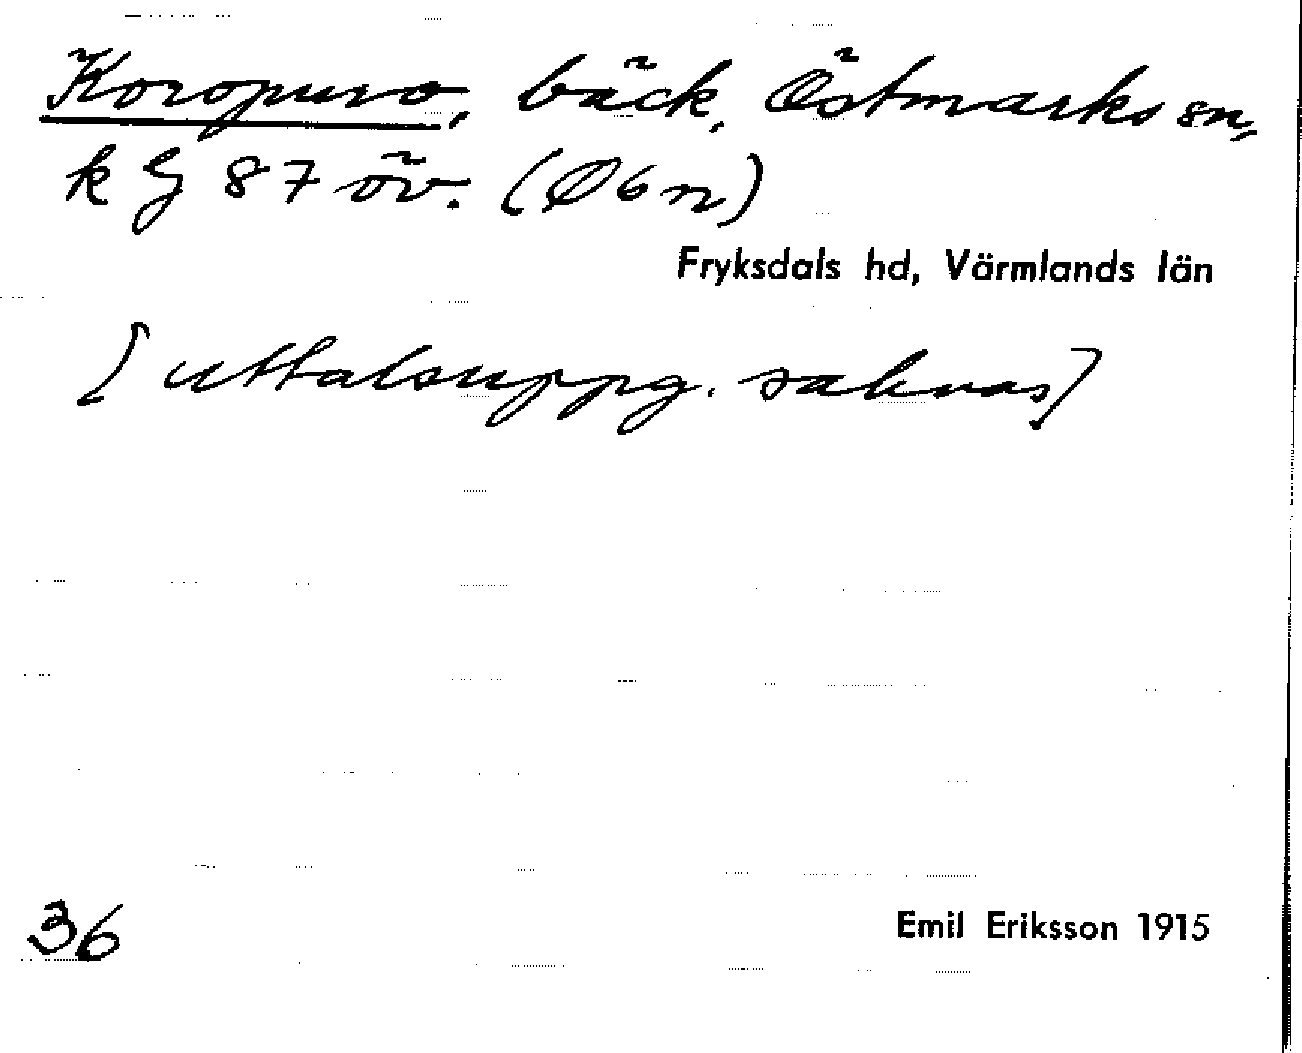 Koropuro, bäck, Östmarks sn,
k G 87 öv. (Ö6n)
Fryksdals hd, Värmlands län
[uttalsuppg. saknas]
36
Emil Eriksson 1915